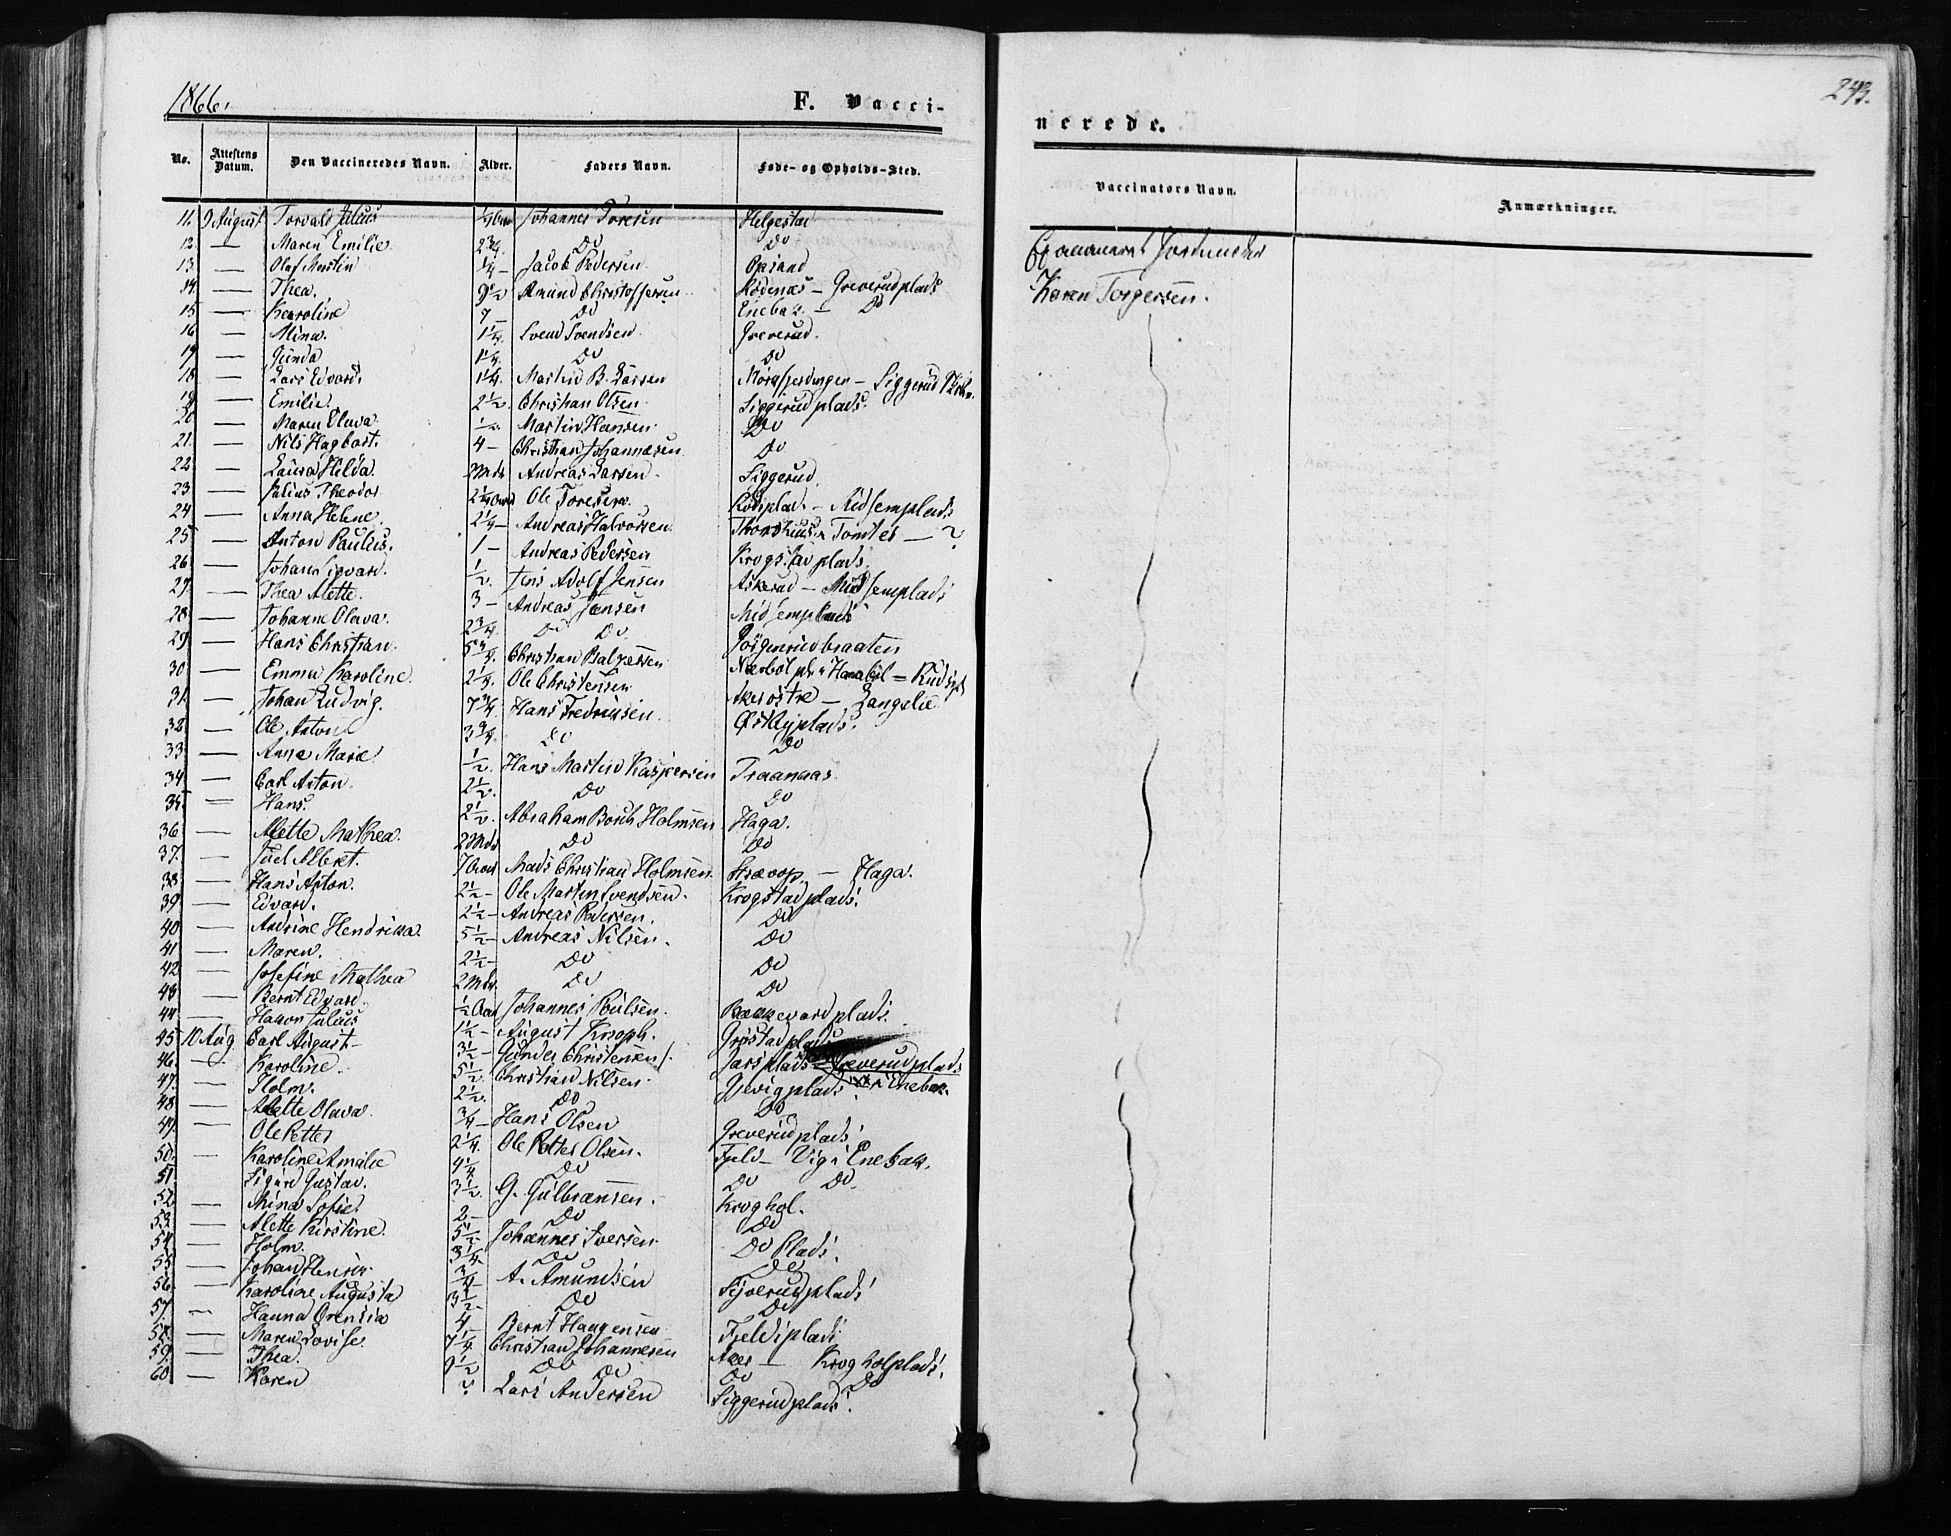 1866.
F. Vacci-
No. Attestens Datum. Den Vaccineredes Navn. Alder. Faders Navn. Føde- og Opholds-Sted.
11. 9 August Torvald Julius 1/4 Aar Johannes Toresen Helgestad
12. — Maren Emilie 2 3/4 Do Do
13. — Olaf Martin 1/4 — Jacob Pedersen Opsand
14. — Thea. 9 1/2 Amund Christoffersen Rødenæs — Greverudplads
15 — Karoline 7 — Do Enebak — Do
16 — Mina. 1 1/4 Svend Svendsen Greverud.
17 — Gunda 1 1/4 Do Do
18 — Lars Edvard. 1 1/4 Martin B. Larsen — Siggerud
19 — Emilie 2 1/2 Christian Olsen Siggerudplads.
20 — Maren Olava 1/2 Martin Hansen Do
21. — Nils Hagbart. 4 — Christian Johannesen Do
22 — Laura Hilda. 2 Mdr Andreas Larsen Siggerud.
23 — Julius Theodor 2 1/4 Aar Ole Toresen
24 — Anna Helene. 2 1/4 — Andreas Halvorsen — Tomter — ?
25 — Anton Paulus. 1 — Andreas Pedersen Krogstadplads.
26. — Johan Sigvard. 1/2 Jens Adolf Jensen Askerud — Midsemplads
27. — Thea Alette. 3 — Andreas Jensen Midsemplads
28 — Johanne Olava. 2 3/4 Do Do
29. — Hans Christian. 5 3/4 Christian Balzersen
30 — Emma Karoline. 2 1/4 Ole Christensen
31. — Johan Ludvig. 7 3/4 Hans Fredriksen. Aker østre — Langelie
32. — Ole Anton 3 3/4 Do
33. — Anna Marie. 1/2 Hans Martin Kaspersen Traanaas
34. — Carl Anton. 2 1/2 Do Do
35. — Hans. 2 1/2 Abraham Borch Holmsen Haga.
36 — Alette Mathea. 2 Mdr. Do Do
37. — Juel Albert. 7 Aar Mads Christian Holmsen — Haga.
38 — Hans Anton. 2 1/2 — Ole Martin Svendsen. Krogstadplads.
39 — Edvard. 2 1/2 — Andreas Pedersen. Do
40 — Andrine Hendrikka. 5 1/2 — Andreas Nilsen. Do
41 — Maren. 2 1/2 — Do Do
42 — Josefine Mathea 2 Mdr. Do Do
43 — Bernt Edvard. 1/2 Aar Johannes Bakkevardplads.
44 — Hakon Julius 1 1/2 — August Knoph.
45 10 Aug Carl August 3 1/2 — Gunder Christensen
46. — Karoline. 5 1/2 Christian Nilsen. Gjevigplads. i Enebak.
47. — Holm. 2 1/2 Do Do
48 — Alette Olava. 3/4 — Hans Olsen Greverudplads
49. — Ole Petter 2 1/4 Ole Petter Olsen. Fjeld — Vig i Enebak.
50. — Karoline Amalie 4 1/4 Do Do Do
51. — Sigurd Gustav. 3 1/2 G. Gulbransen. Kroghol.
52. — Mina Sofie. 2 — Do Do
53. — Alette Kirstine. 5 1/2 Johannes Iversen Do Plads.
54. — Holm. 3 1/4 Do Do
55. — Johan Henrik. 3/4 A. Amundsen
56. — Karoline Augusta 3 1/2 — Do Do
57. — Hanna 4 — Bernt Haagensen
58. — Maren Lovise. 7 1/4 Christian Johannesen Aker — Krogholplads.
59. — Thea. 9 1/2 Do Do Do Do
60 — Karen ? Lars Andersen Siggerudplads.
243.
nerede.
Vaccinators Navn. Anmærkninger.
Examineret Jordmoder
Karen Torgersen.